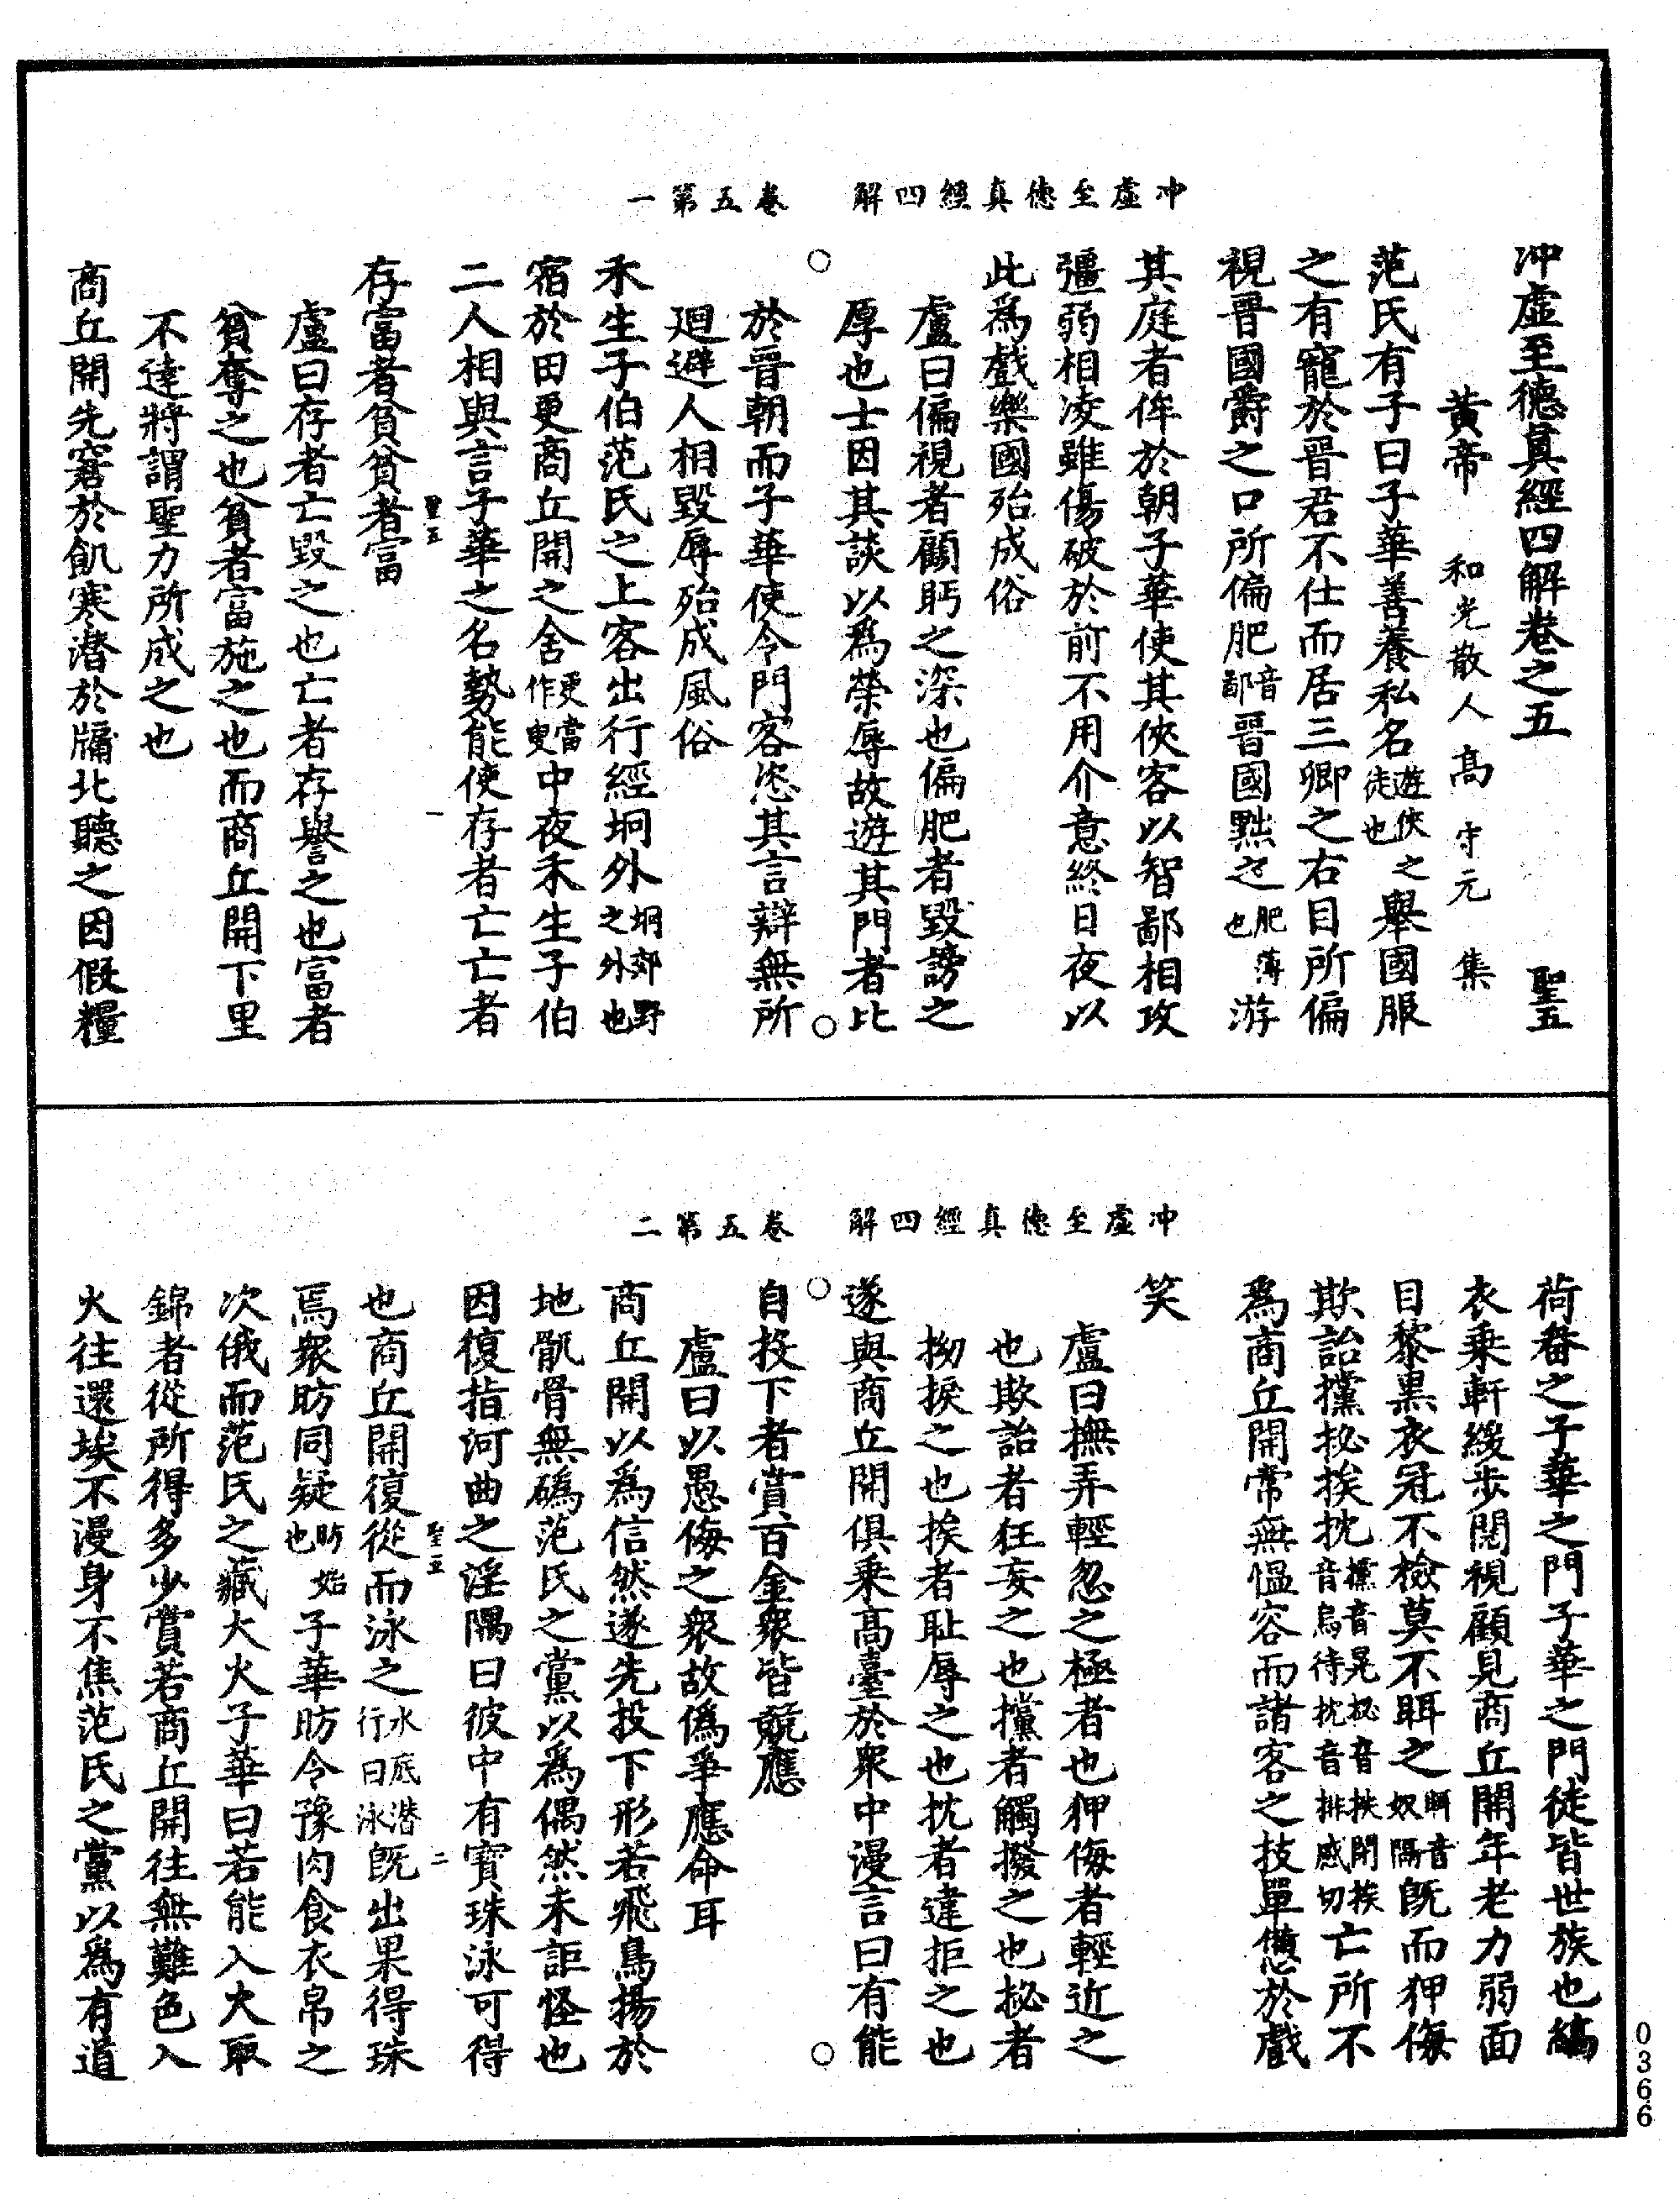 冲虛至德真經四解　卷五第一
冲虛至德眞經四解卷之五　聖五
黃帝　和光散人高守元集
范氏有子曰子華善養私名遊俠之徒也舉國服
之有寵於晋君不仕而居三卿之右目所偏
視晋國爵之口所偏肥音鄙晋國黜之肥薄也游
其庭者侔於朝子華使其俠客以智鄙相攻
彊弱相凌雖傷破於前不用介意終日夜以
此爲戲樂國殆成俗
盧曰偏視者顧眄之深也偏肥者毀謗之
厚也士因其談以爲榮辱故遊其門者比
於晋朝而子華使令門客恣其言辯無所
迴避人相毀辱殆成風俗
禾生子伯范氏之上客出行經坰外坰郊野之外也
宿於田更商丘開之舍更當作叟中夜禾生子伯
二人相與言子華之名勢能使存者亡亡者
聖五　一
存富者貧貧者富
盧曰存者亡毀之也亡者存譽之也富者
貧奪之也貧者富施之也而商丘開下里
不達將謂聖力所成之也
商丘開先窘於飢寒潜於牖北聽之因假糧
冲虛至德真經四解　卷五第二
荷畚之子華之門子華之門徒皆世族也縞
衣乗軒緩步闊視顧見商丘開年老力弱面
目黎黒衣冠不檢莫不眲之眲音奴隔旣而狎侮
欺詒攩㧙挨抌攩音晃㧙音扶閉挨音烏待抌音排感切亡所不
爲商丘開常無慍容而諸客之技單憊於戲
笑
盧曰撫弄輕忽之極者也狎侮者輕近之
也欺詒者狂妄之也攩者觸撥之也㧙者
拗捩之也挨者耻辱之也抌者違拒之也
遂與商丘開俱乗高臺於衆中漫言曰有能
自投下者賞百金衆皆競應
盧曰以愚侮之衆故僞爭應命耳
商丘開以爲信然遂先投下形若飛鳥揚於
地骩骨無䃣范氏之黨以爲偶然未詎怪也
因復指河曲之淫隅曰彼中有寳珠泳可得
聖五　二
也商丘開復從而泳之水底潜行曰泳旣出果得珠
焉衆昉同疑昉始也子華昉令豫肉食衣帛之
次俄而范氏之藏大火子華曰若能入火取
錦者從所得多少賞若商丘開往無難色入
火往還埃不漫身不焦范氏之黨以爲有道
0366